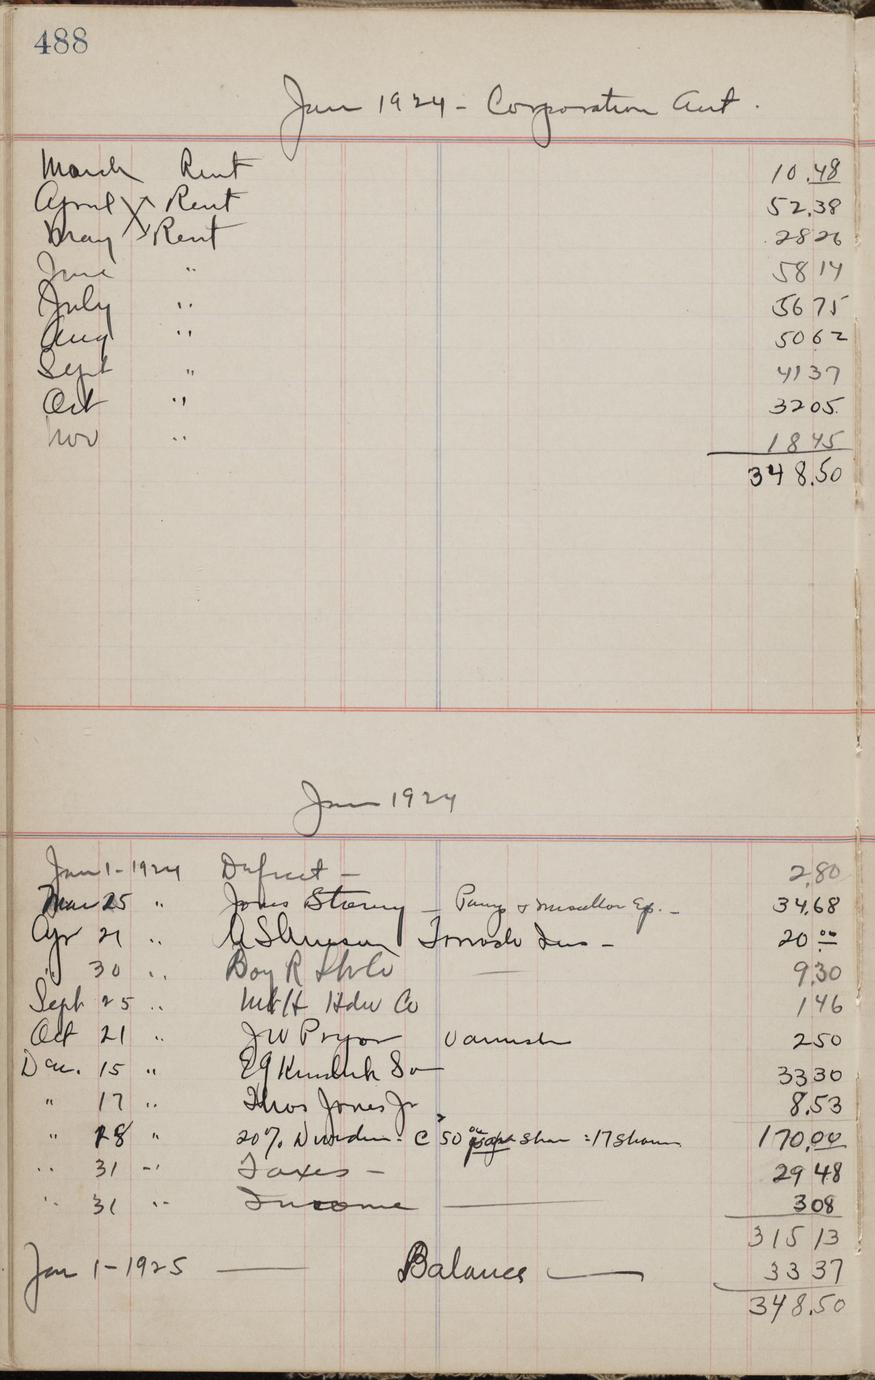 488
Jan 1924 - Corporation Acct.
March Rent 10.48
April Rent 52.38
May Rent 28 26
June " 58 14
July " 56 75
Aug " 50 62
Sept " 41 37
Oct " 32 05
Nov " 18 45
348.50
Jan 1924
Jan 1 - 1924 Deficit - 2.80
Mar 25 " Jones Storey - & Ep. - 34.68
Apr 21 " Ins - 20 00
" 30 " Boy R 9.30
Sept 25 " Mt H Hdw Co 1 46
Oct 21 " J W Pryor Varnish 2 50
Dec. 15 " E G 33 30
" 17 " Thos Jones Jr 8.53
" 28 " 20% 50 00 Share = 17 Shares 170.00
" 31 " Taxes - 29 48
" 31 " Income 3 08
315 13
Jan 1 - 1925 Balance 33 37
348.50